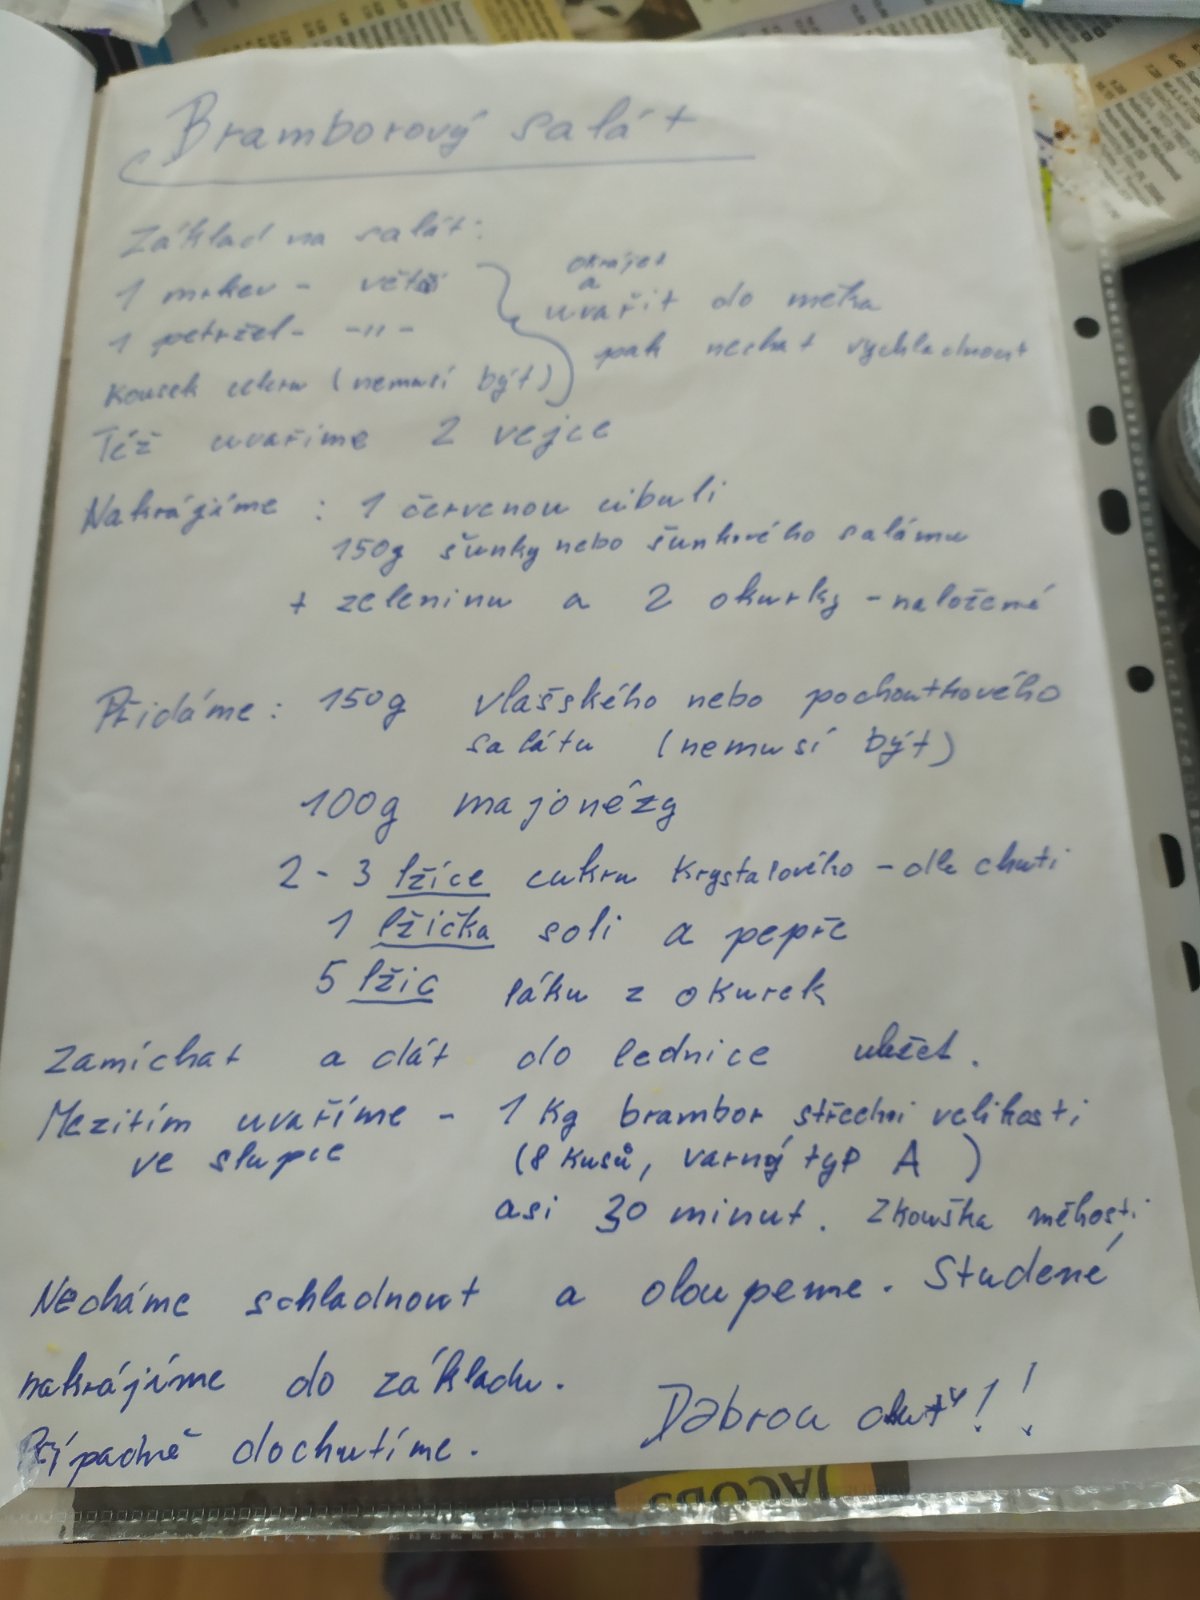 Bramborový salát
Základ na salát:
1 mrkev - větší
1 petržel - -"-
kousek celeru (nemusí být)
okrájet
a
uvařit do měkka
pak nechat vychladnout
Též uvaříme 2 vejce
Nakrájíme : 1 červenou cibuli
150g šunky nebo šunkového salámu
+ zeleninu a 2 okurky - naložené
Přidáme : 150g vlašského nebo pochoutkového
salátu (nemusí být)
100g majonézy
2 - 3 lžíce cukru krystalového - dle chuti
1 lžička soli a pepře
5 lžic láku z okurek
Zamíchat a dát do lednice uležet.
Mezitím uvaříme - 1 kg brambor střední velikosti
ve slupce (8 kusů, varný typ A )
asi 30 minut. Zkouška měkosti
Necháme schladnout a oloupeme. Studené
nakrájíme do základu.
Případně dochutíme.
Dobrou chuť!!
JACOBS